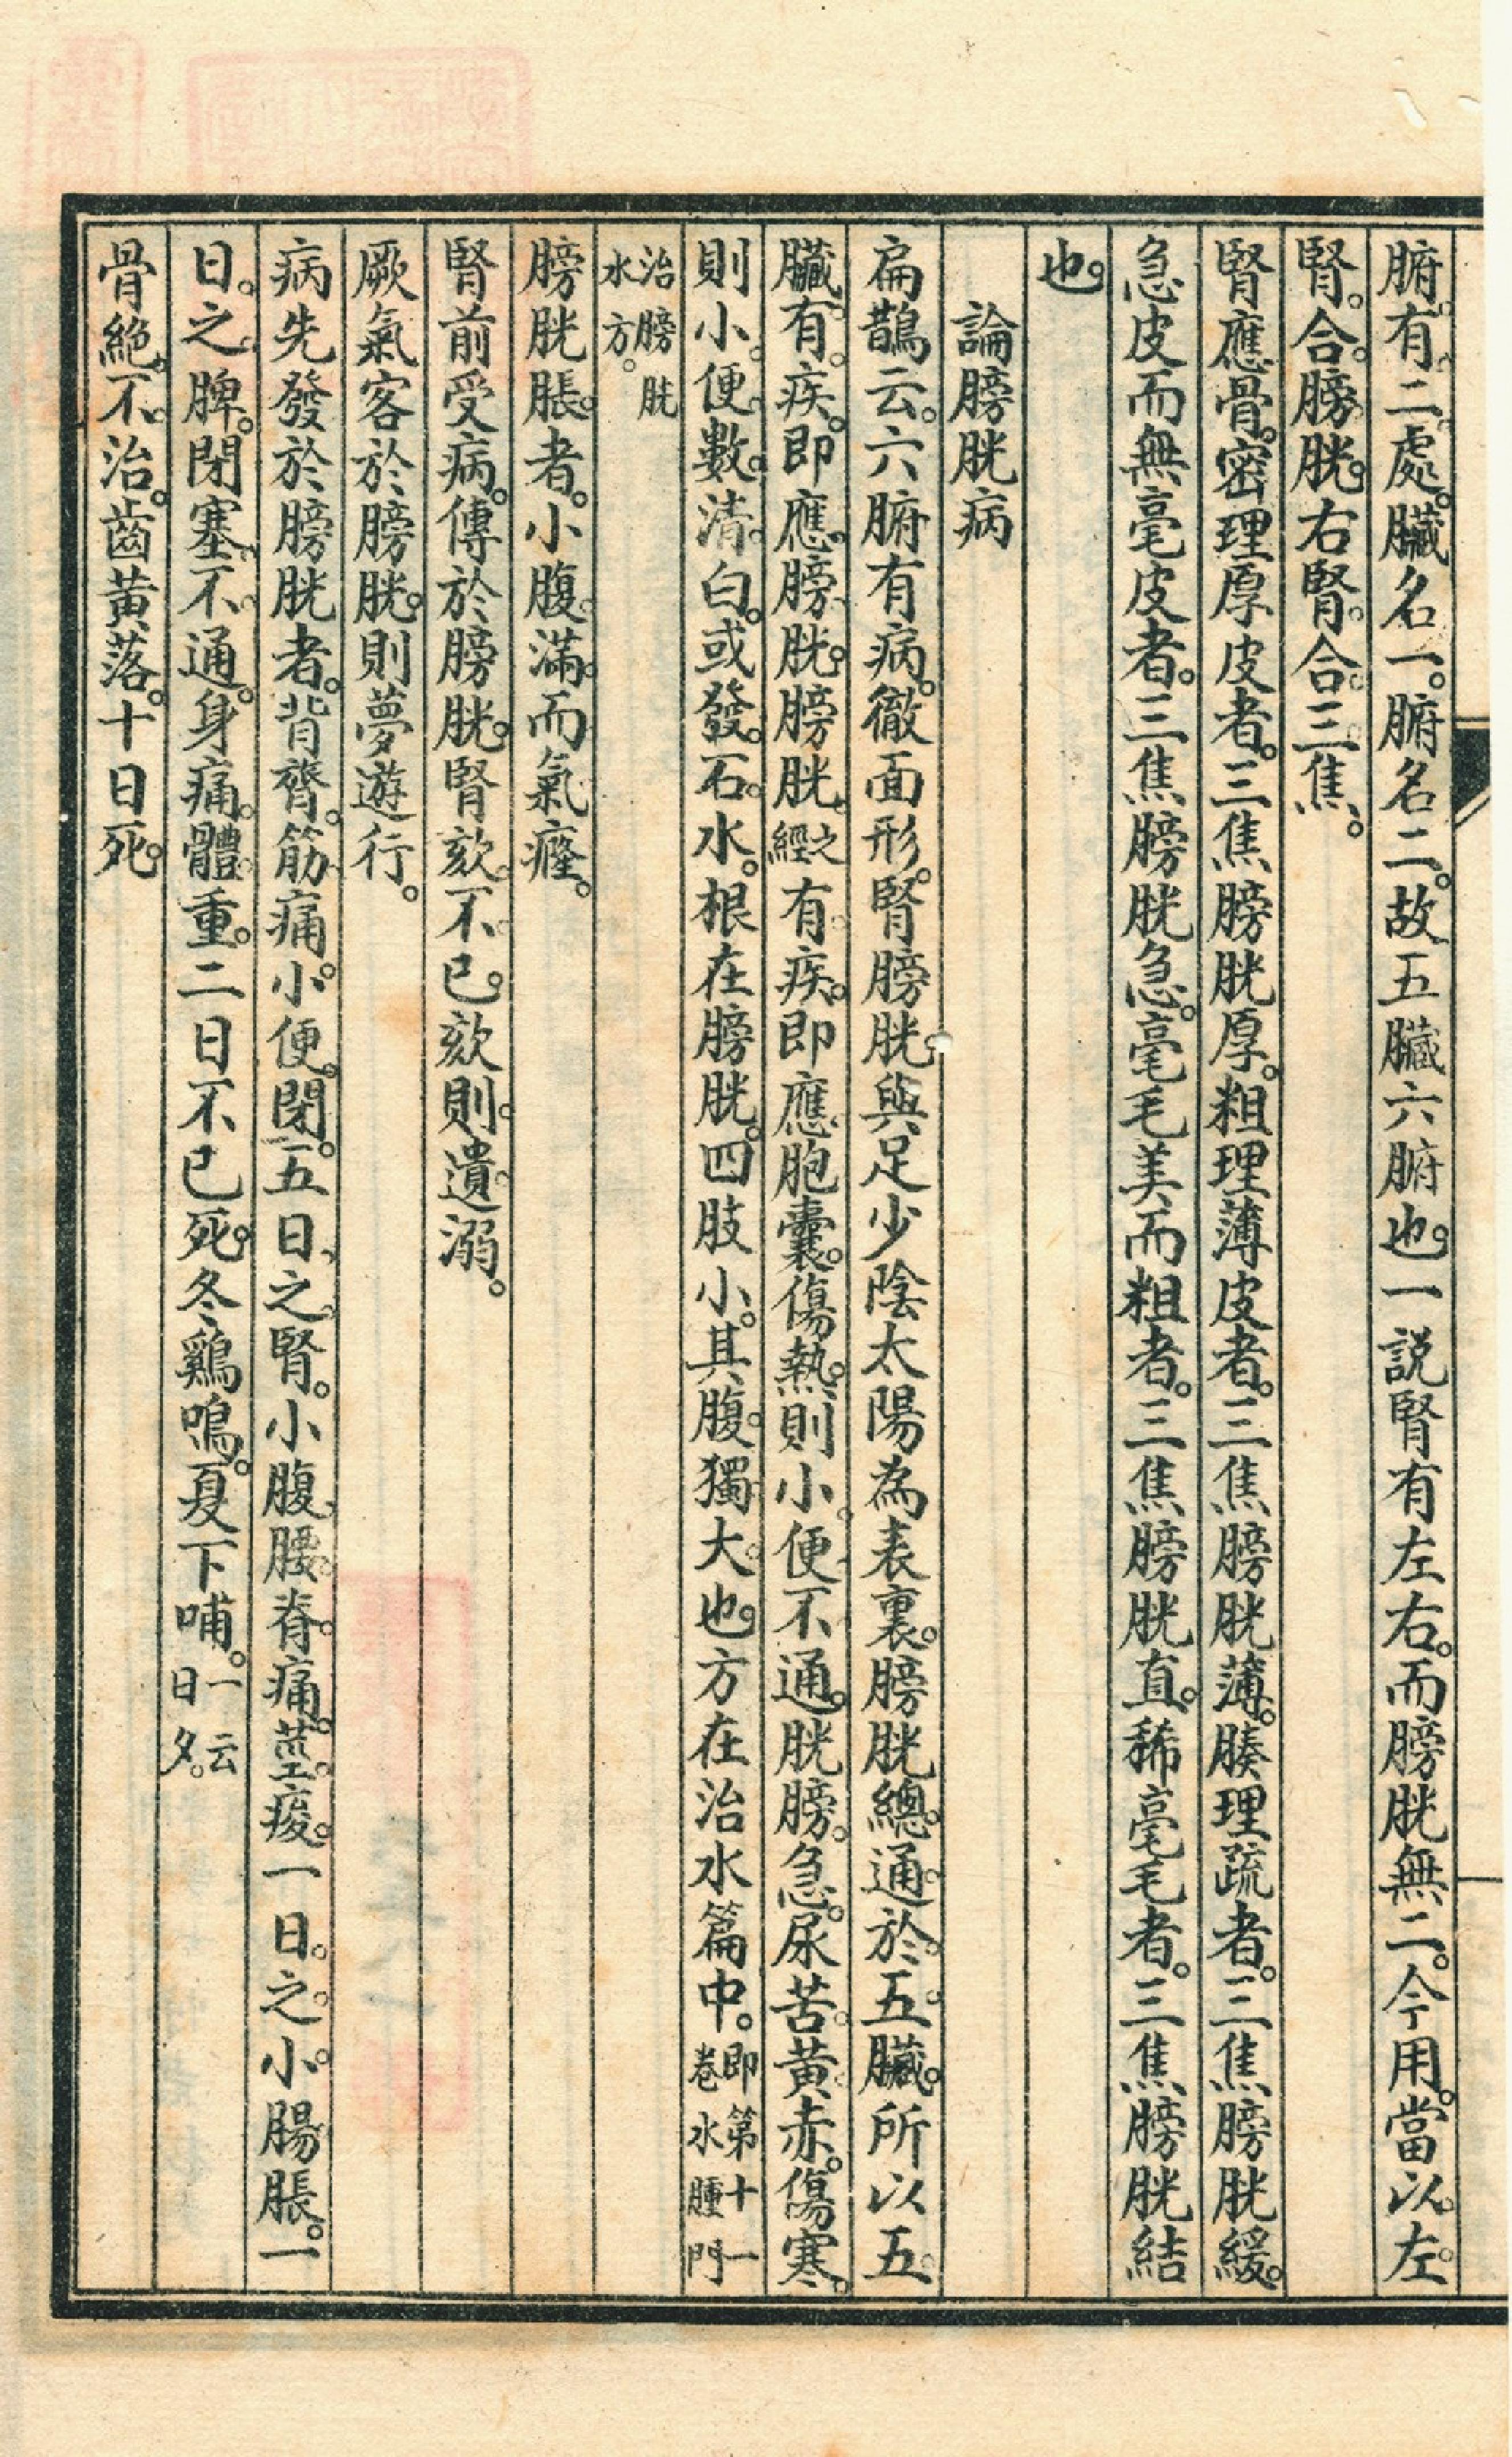 腑有二處。臟名一。腑名二。故五臟六腑也。一説腎有左右。而膀胱無二。今用。當以。左。
腎。合。膀胱。右腎。合。三焦。
腎應骨。密理厚皮者。三焦膀胱厚。粗理薄皮者。三焦膀胱薄。腠理疏者。三焦膀胱緩。
急皮而無毫皮者。三焦膀胱急。毫毛美而粗者。三焦膀胱直。稀毫毛者。三焦膀胱結
也。
論膀胱病
扁鵲云。六腑有病。徹面形。腎膀胱。與足少陰太陽為表裏。膀胱總。通。於。五。臟。所以五。
臟。有。疾。即應。膀胱。膀胱。之經有疾。即應胞囊。傷熱。則小便不通。胱膀。急。尿苦。黄赤。傷寒。
則小。便。數。清。白。或發。石。水。根在膀胱。四肢小。其腹。獨大。也。方在治水篇中。即第十一卷水腫門
治膀胱水方。
膀胱脹者。小腹。滿。而氣癃。
腎前受病。傳於膀胱。腎欬。不已。欬則遺溺。
厥氣客於膀胱。則夢遊行。
病先發於膀胱者。背膂。筋痛。小便。閉。五日。之。腎。小腹腰。脊。痛。䯒。痠。一日。之。小。腸脹。一
日。之。脾。閉塞。不。通。身痛。體重。二日不已死。冬鷄鳴。夏下哺。一云日夕。
骨絶。不。治。齒黄落。十日死。